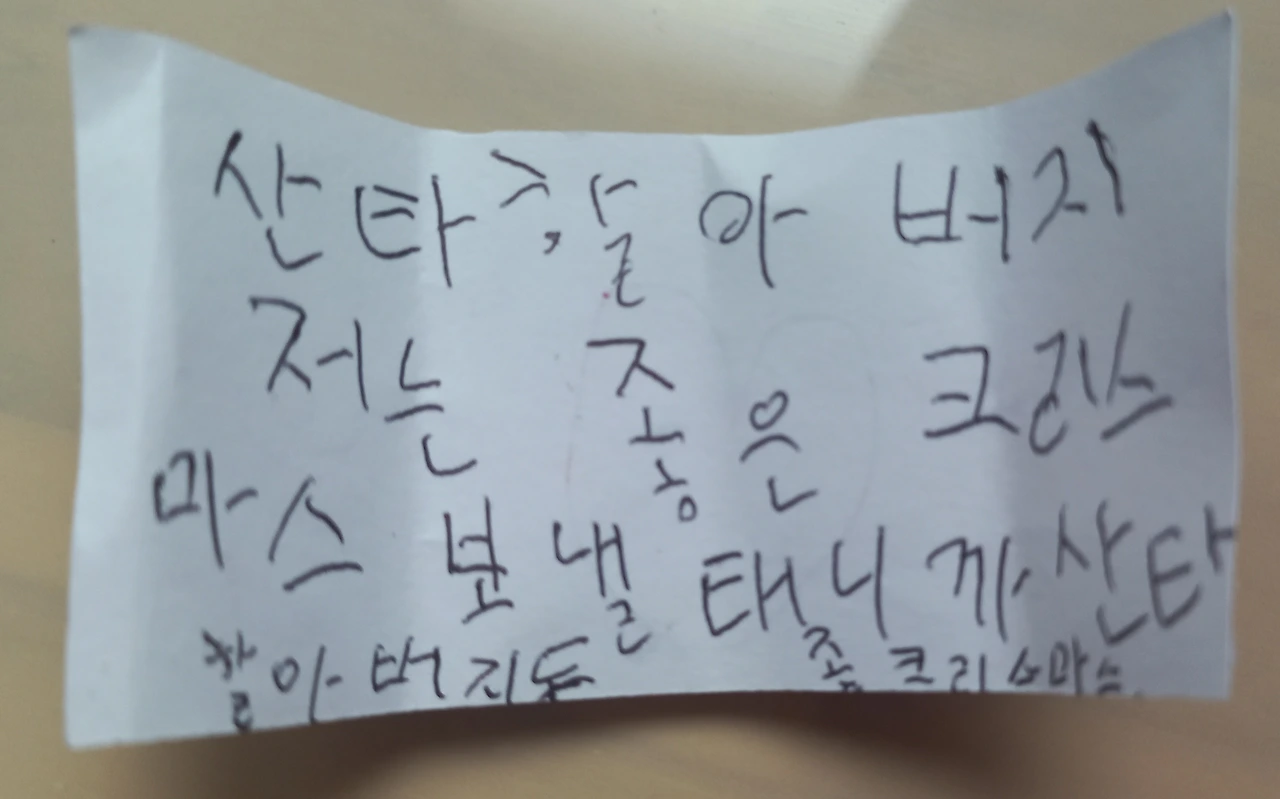 산타할아버지
저는 좋은 크리스
마스 보낼 태니까 산타
할아버지도 좋은 크리스마스